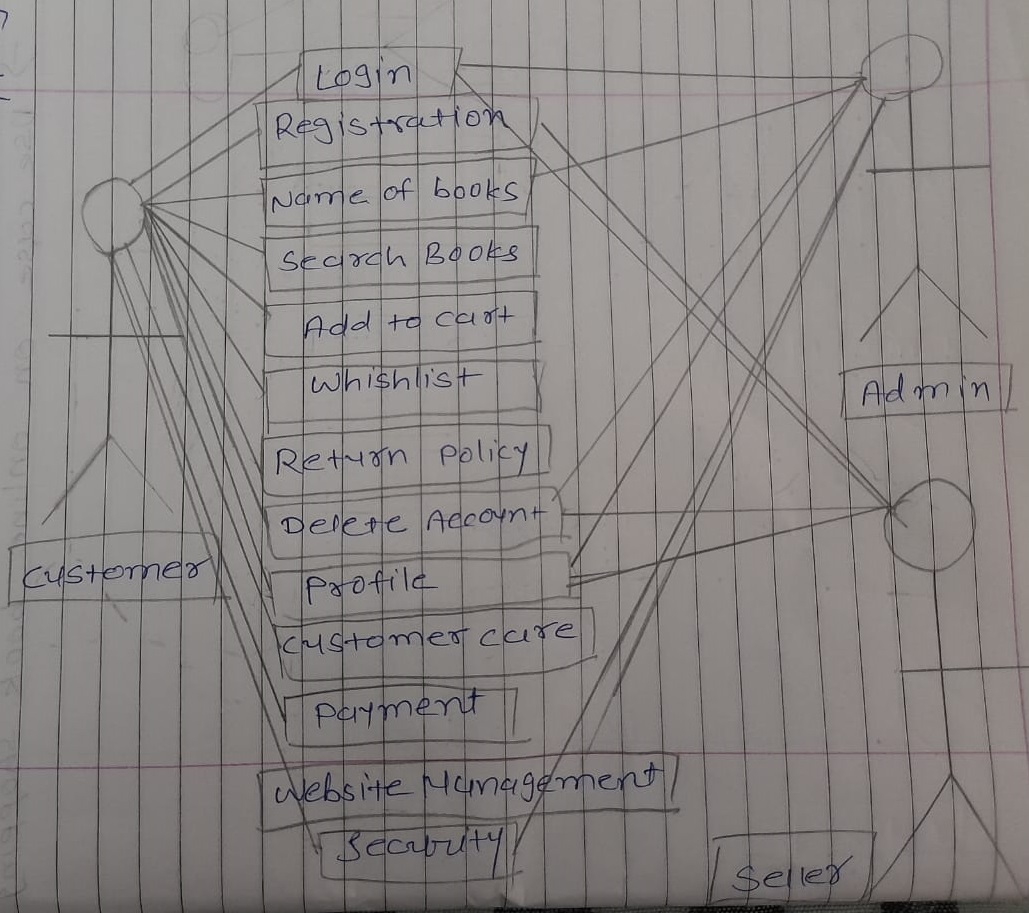 Login
Registration
Name of books
Search Books
Add to cart
Whishlist
Return policy
Delete Account
Profile
Customer care
Payment
Website Management
Security
Customer
Admin
Seller